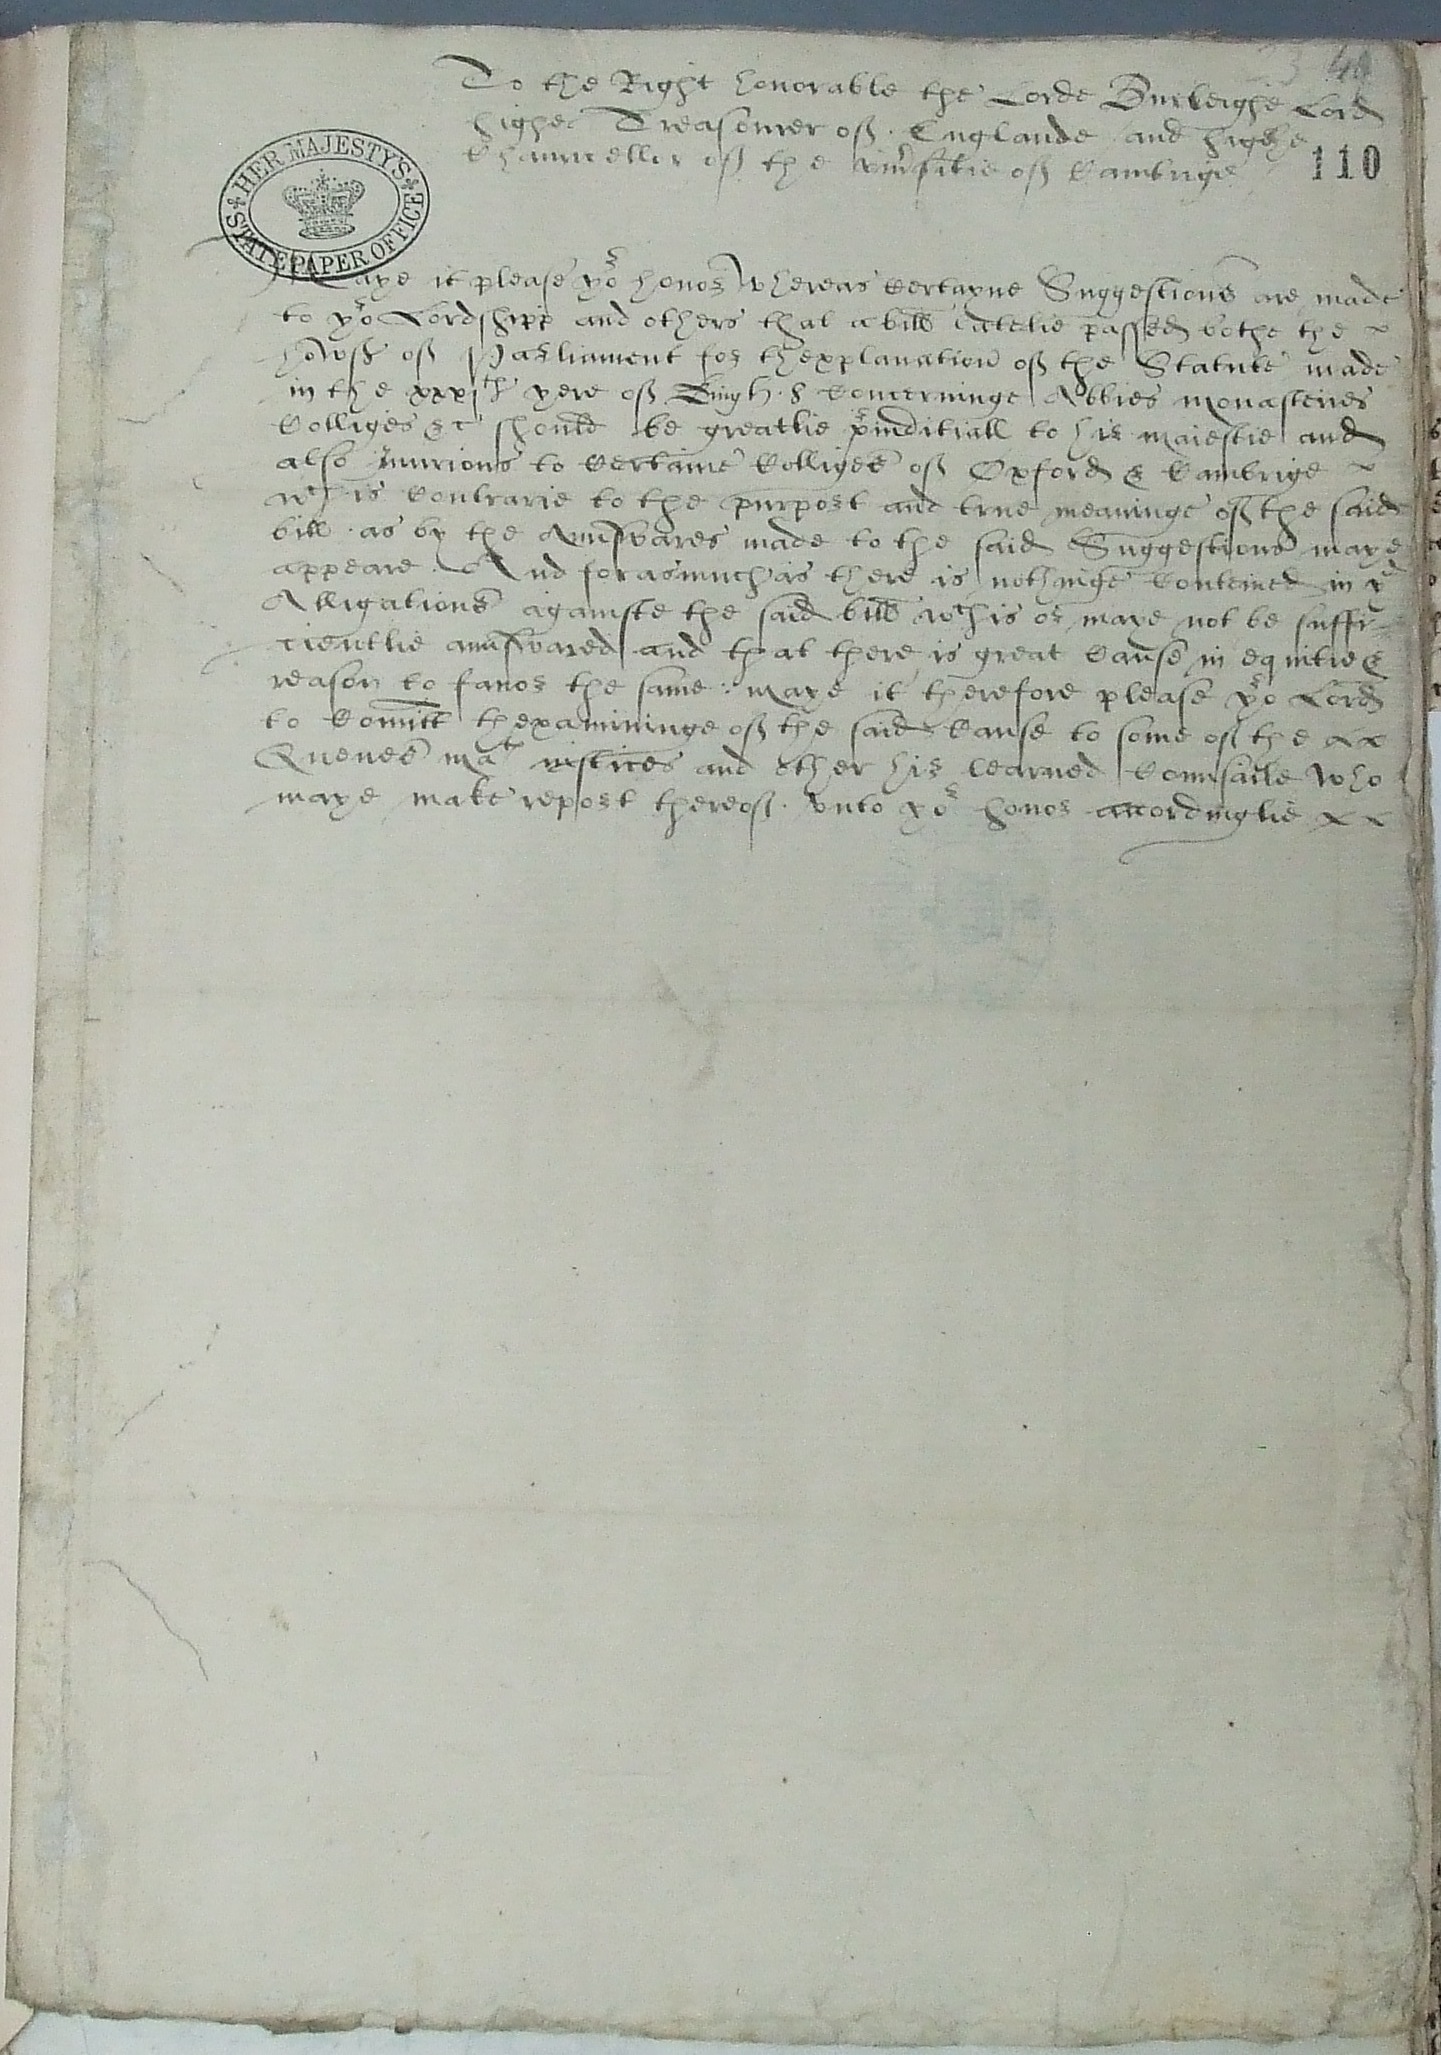 To the Right honorable the Lorde Burleighe Lord
highe Treasourer off Englande and highe
Chauncellor off the vniusitie off Cambrige
110
HER MAJESTY'S
STATE PAPER OFFICE
Maye it please yor honor Whereas certayne Suggestions are made
to yor Lordshipp and others that a bill latelie passed bothe the
howss off Parliament for thexplanation off the Statute made
in the xxxjth yere off King h. 8 concerninge Abbies monasteries
Colliges &c should be greatlie priudiciall to hir maiestie and
also iniurious to certaine Colliges off Oxford & Cambrige
wch is contrarie to the purport and true meaninge off the saide
bill as by the Aunswares made to the said Suggestions maye
appeare. And forasmuch as there is nothinge conteined in ye
Alligations againste the said bill wch is or maye not be suffi-
cientlie aunswared and that there is great cause in equitie &
reason to favor the same: maye it therefore please yor Lord
to comitt thexamininge off the said cause to some off the
Quenes mats iustices and other hir learned counsaile who
maye make report thereoff vnto yor honor accordinglie